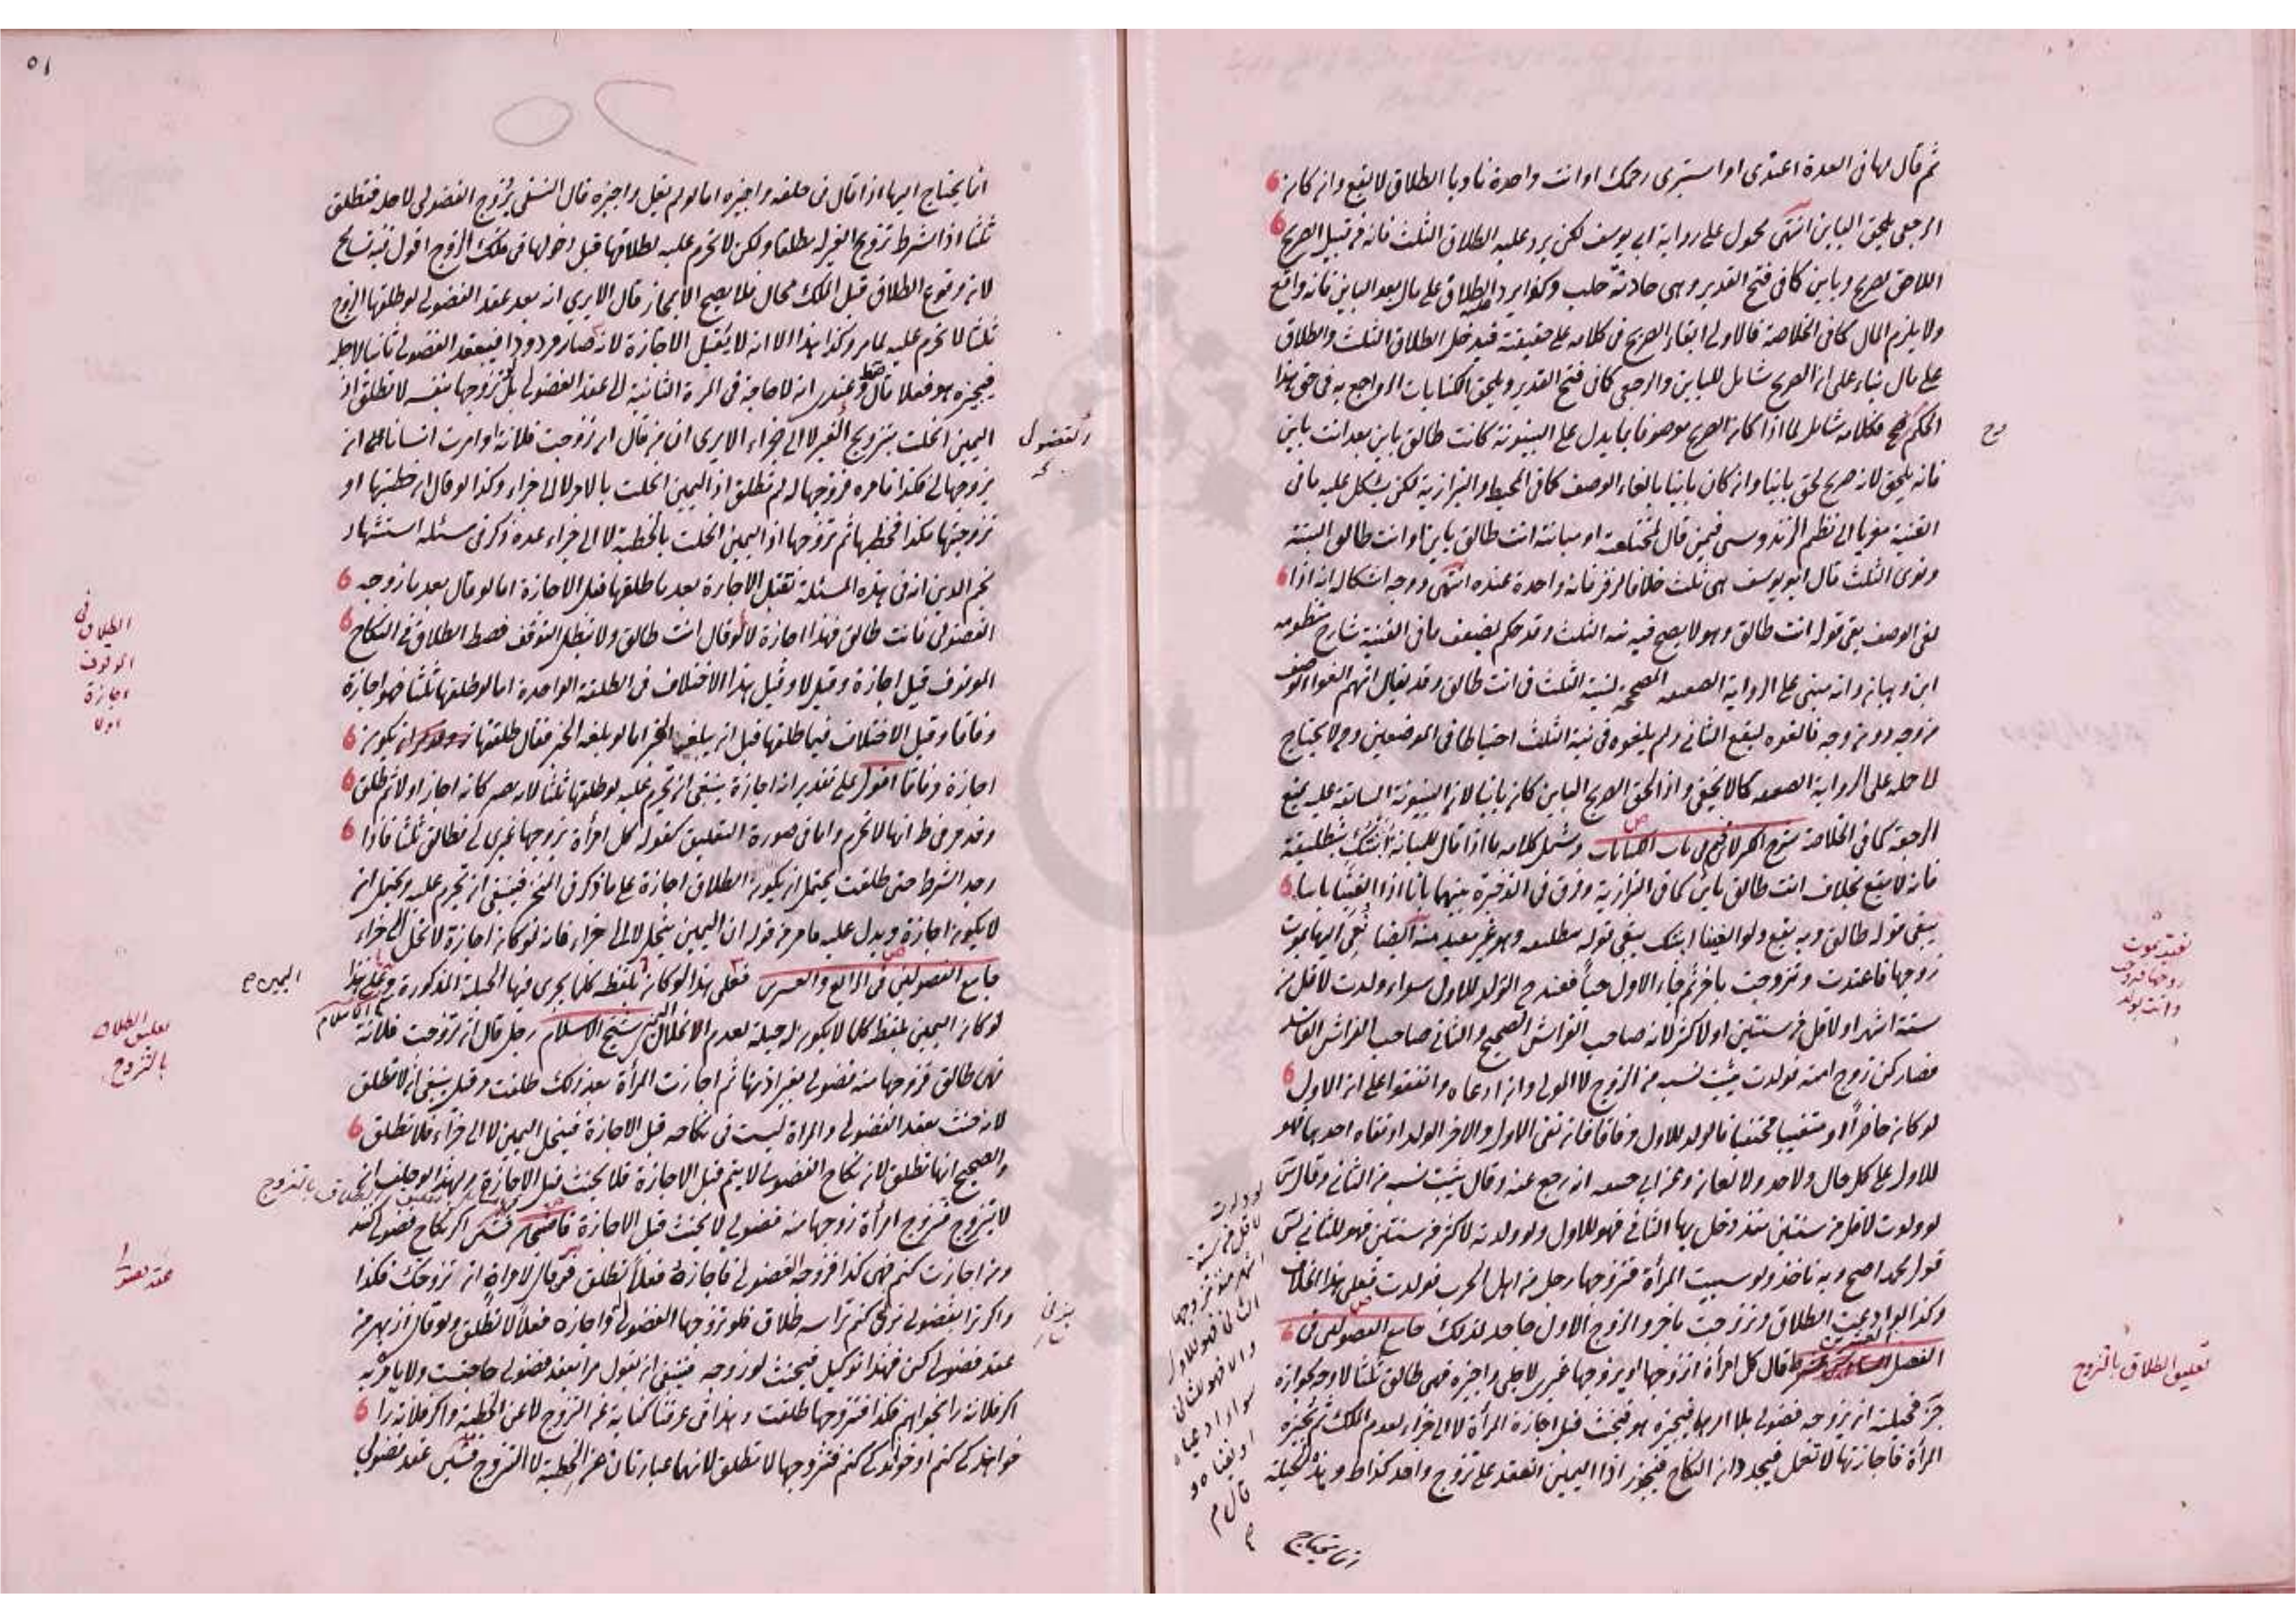 ثم قال لها فى العدة اعتدى او استبرى رحمك او انت واحدة ناويا الطلاق لا يقع وان كان
الرجعى يلحق الباين انتهى محمول على رواية ابى يوسف لكن يرد عليه الطلاق الثلث فانه من قبيل الصريح
اللاحق لصريح وباين كما فى فتح القدير وهى حادثة حلب وكذا يرد الطلاق على مال بعد الباين فانه واقع
ولا يلزم المال كما فى الخلاصة فالاولى ابقاء الصريح فى كلامه على حقيقته فيدخل الطلاق الثلث والطلاق
على مال بناء على ان الصريح شامل للباين والرجعى كما فى فتح القدير ويلحق الكنايات الرواجع به فى حق هذا
الحكم فكلامه شامل لما اذا كان الصريح موصوفا بما يدل على البينونة كانت طالق باين بعد انت باين
فانه يلحق لانه صريح لحق باينا وان كان باينا بالغاء الوصف كما فى المحيط والبزازية لكن يشكل عليه ما فى
القنية معزيا الى نظم الزندوسى فيمن قال لمختلعة او مبانته انت طالق باين او انت طالق البتة
ونوى الثلث قال ابو يوسف هى ثلث خلافا لزفر فانه واحدة عنده انتهى ووجه اشكاله انه اذا
لغى الوصف بقى قوله انت طالق وهو لا يصح فيه نية الثلث وقد حكم بضعف ما فى القنية شارح منظومه
ابن وهبان وانه مبنى على الرواية الضعيفة المصححة لنية الثلث فى انت طالق وقد يقال انهم الغوا الوصف
من وجه دون وجه فالغوه ليقع الثانى ولم يلغوه فى نية الثلث احتياطا فى الموضعين ولا يحتاج
لا حمله على الرواية الضعيفة كما لا يخفى واذا لحق الصريح الباين كان باينا لان البينونة السابقة عليه يمنع
الرجعة كما فى الخلاصة شرح الكنز لابن نجيم فى باب الكنايات وشمل كلامه ما اذا قال للمبانة ابنتك بتطليقة
فانه لا يقع بخلاف انت طالق باين كما فى البزازية وفرق فى الذخيرة بينهما بانا اذا الغينا باينا
يبقى قوله طالق وبه يقع ولو الغينا ابنتك يبقى قوله بتطليقة وهو غير مفيد منه ايضا نعى اليها بموت
زوجها فاعتدت وتزوجت باخر ثم جاء الاول حيا فعند ح الولد للاول سواء ولدت لاقل من
ستة اشهر او لاقل من سنتين او لاكثر لانه صاحب الفراش الصحيح والثانى صاحب الفراش الفاسد
فصار كمن زوج امته فولدت يثبت نسبه من الزوج لا المولى وان ادعاه واتفقوا على ان الاول
لو كان حاضرا او متغيبا مختفيا فالولد للاول وفاقا فان نفى الاول والاخر الولد او نفاه احدهما فهو
للاول على كل حال ولا حد ولا لعان وعن ابى حنيفة انه رجع عنه وقال يثبت نسبه من الثانى وقال س
لو ولدت لاقل من سنتين منذ دخل بها الثانى فهو للاول ولو ولدته لاكثر من سنتين فهو للثانى س
قول محمد اصح وبه ناخذ ولو سبيت المرأة فتزوجها رجل من اهل الحرب فولدت فعلى هذا الخلاف
وكذا لو ادعيت الطلاق وتزوجت باخر والزوج الاول جاحد لذلك جامع الفصولين فى
الفصل العشرين قال كل امرأة اتزوجها او يزوجها غيرى لاجلى واجيزه فهى طالق ثلثا لا وجه لجوازه
فحيلته ان يزوجه فضولى بلا امرهما فيجيزه هو فيحنث قبل اجازة المرأة لا الى جزاء لعدم الملك ثم تجيزه
المرأة فاجازتها لا تعمل فيجددان النكاح فيجوز اذا اليمين انعقد على تزوج واحد كذا ط وهذه الحيلة
انما يحتاج
نعيت بموت
زوجها فتزوجت
واتت بولد
تعليق الطلاق بالتزوج
لو ولدت
لاقل من ستة
اشهر منذ تزوجها
الثانى فهو للاول
والا فهو للثانى
سواء ادعياه
او نفياه
قال م
انما يحتاج اليها اذا قال فى حلفه واجيزه اما لو لم يقل واجيزه قال النسفى يزوج الفضولى لاجله فتطلق
ثلثا اذ الشرط تزويج الغير له مطلقا ولكن لا تحرم عليه لطلاقها قبل دخولها فى ملك الزوج اقول فيه تسامح
لان وقوع الطلاق قبل الملك محال فلا يصح الا بمجاز قال الابرى انه بعد عقد الفضولى لو طلقها الزوج
ثلثا لا تحرم عليه لما مر وكذا هذا الا انه لا يقبل الاجازة لانه صار مردودا فيعقد الفضولى ثانيا لاجله
فيجيزه هو فعلا قال وعندى انه لا حاجة فى المرة الثانية الى عقد الفضولى بل لو تزوجها بنفسه لا تطلق اذ
اليمين انحلت بتزويج الغير لا الى جزاء الا يرى ان من قال ان تزوجت فلانة او امرت انسانا ان
يزوجها لى فكذا فامره فزوجها له لم تطلق اذ اليمين انحلت بالامر لا الى جزاء وكذا لو قال ان خطبتها او
تزوجتها فكذا فخطبها ثم تزوجها اذ اليمين انحلت بالخطبة لا الى جزاء عده ذكر فى مسئله استشهاد
نجم الدين انه فى هذه المسئلة تقبل الاجازة بعد ما طلقها قبل الاجازة اما لو قال بعد ما زوجه
الفضولى فانت طالق فهذا اجازة لا لو قال انت طالق ولا تبطل التوقف فصط الطلاق فى النكاح
الموقوف قيل اجازة وقيل لا وقيل هذا الاختلاف فى الطلقة الواحدة اما لو طلقها ثلثا فهو اجازة
وفاقا وقيل الاختلاف فيما طلقها قبل ان يبلغه الخبر اما لو بلغه الخبر فقال طلقتها يكون
اجازة وفاقا اقول على تقدير انه اجازة ينبغى ان تحرم عليه لو طلقها ثلثا لانه يصير كانه اجاز اولا ثم طلق
وقد مر فى ط انها لا تحرم واما فى صورة التعليق كقوله كل امرأة يزوجها غيرى لى فطالق ثلثا فاذا
وجد الشرط حتى طلقت يحتمل ان يكون الطلاق اجازة على ما ذكر فى المنح فينبغى ان تحرم عليه ويحتمل ان
لا يكون اجازة ويدل عليه ما مر من قوله ان اليمين ينحل لا الى جزاء فانه لو كان اجازة لانحل الى جزاء
جامع الفصولين فى الرابع والعشرين فعلى هذا لو كان بلفظه كلما يجرى فيها الحيلة المذكورة وعلى هذا
لو كان اليمين بلفظ كلما لا يكون له حيلة لعدم الانحلال شيخ الاسلام رجل قال ان تزوجت فلانة
فهى طالق فزوجها منه فضولى بغير اذنها ثم اجازت المرأة بعد ذلك طلقت وقيل ينبغى ان لا تطلق
لانه حنث بعقد الفضولى والمراة ليست فى نكاحه قبل الاجازة فينحل اليمين لا الى جزاء فلا تطلق
والصحيح انها تطلق لان نكاح الفضولى لا يتم قبل الاجازة فلا يحنث قبل الاجازة ولهذا لو حلف ان
لا يتزوج فتزوج امرأة زوجها منه فضولى لا يحنث قبل الاجازة قاضيخان اكر نكاح فضولى كند
ومن اجازت كنم فهى كذا فزوجه الفضولى فاجازه فعلا تطلق قال لامراة ان تزوجتك فكذا
واكر ترا بفضولى بزنى كنم ترا سه طلاق فلو تزوجها الفضولى واجازه فعلا لا تطلق ولو قال از بهر من
عقد فضولى كن فهذا توكيل فيحنث لو زوجه فينبغى ان يقول مرا بعقد فضولى حاجتست ولا يامر به
اكر فلانه را بخواهم فكذا فتزوجها طلقت وهذا فى عرفنا كناية عن التزوج لا عن الخطبة واكر فلانه را
خواهندكى كنم او خواندكى كنم فتزوجها لا تطلق لانهما عبارتان عن الخطبة لا التزوج عقد فضولى
الطلاق فى
الموقوف
اجازة
اولا
تعليق الطلاق
بالتزوج
عقد فضولى
اليمين
بزنى
٥١